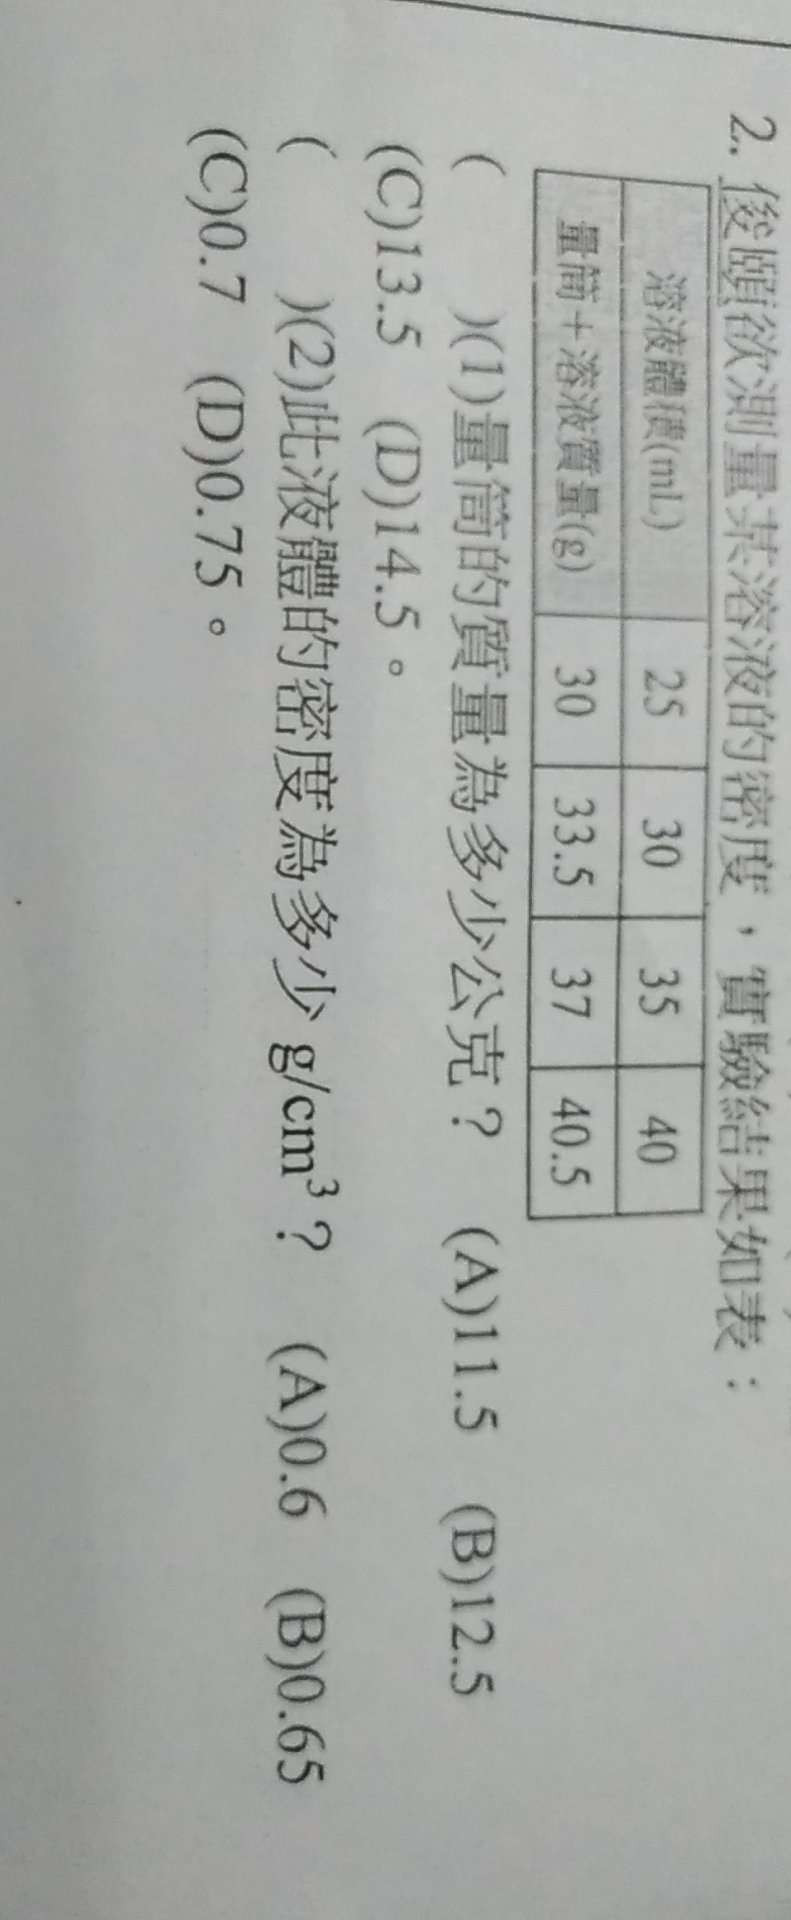 2. 俊頤欲測量某溶液的密度，實驗結果如表：
溶液體積(mL) 25 30 35 40
量筒＋溶液質量(g) 30 33.5 37 40.5
(　　)(1)量筒的質量為多少公克？　(A)11.5　(B)12.5
(C)13.5　(D)14.5。
(　　)(2)此液體的密度為多少 g/cm³？　(A)0.6　(B)0.65
(C)0.7　(D)0.75。